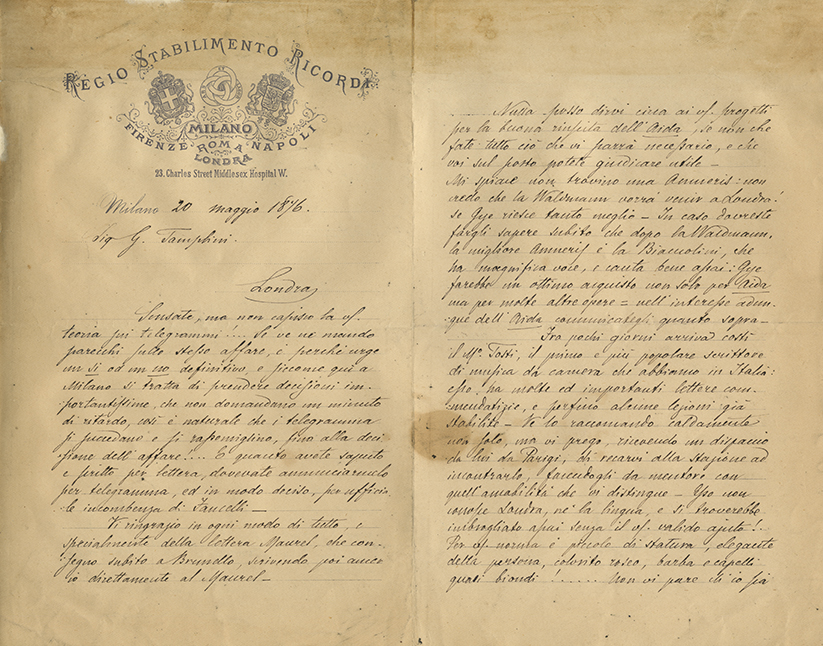 REGIO STABILIMENTO RICORDI
MILANO
FIRENZE ROMA NAPOLI
LONDRA
23. Charles Street Middlesex Hospital W.
Milano 20 maggio 1876.
Sig G. Tamplini.
Londra
Scusate, ma non capisco la vs.
teoria sui telegrammi!... Se ve ne mando
parecchi sullo stesso affare, è perchè urge
un si od un no definitivo, e siccome quì a
Milano si tratta di prendere decisioni im-
portantissime, che non domandano un minuto
di ritardo, così è naturale che i telegramma
si succedano e si rassomiglino, fino alla deci
sione dell'affare!... E quanto avete saputo
e scritto per lettera, dovevate annunciarmelo
per telegramma, ed in modo deciso, per ufficia
le incombenza di Faccelli —
Vi ringrazio in ogni modo di tutto, e
specialmente della lettera Maurel, che con-
segno subito a Brunello, scrivendo poi anco
io direttamente al Maurel —
Nulla posso dirvi circa ai vs. progetti
per la buona riuscita dell'Aida, se non che
fate tutto ciò che vi parrà necessario, e che
voi sul posto potete giudicare utile —
Mi spiace non trovino una Amneris: non
credo che la Waldmann vorrà venir a Londra!
Se Gye riesce tanto meglio — In caso dovreste
fargli sapere subito che dopo la Waldmann,
la migliore Amneris è la Biancolini, che
ha magnifica voce, e canta bene assai: Gye
farebbe un ottimo acquisto non solo per Aida
ma per molte altre opere = nell'interesse adun-
que dell'Aida comunicategli quanto sopra —
Fra pochi giorni arriva costì
il Mo. Tosti, il primo e più popolare scrittore
di musica da camera che abbiamo in Italia:
esso, ha molte ed importanti lettere com-
mendatizie, e persino alcune lezioni già
stabilite — Ve lo raccomando caldamente
non solo, ma vi prego, ricevendo un dispaccio
da lui da Parigi, di recarvi alla stazione ad
incontrarlo, facendogli da mentore con
quell'amabilità che vi distingue — Esso non
conosce Londra, nè la lingua, e si troverebbe
imbrogliato assai senza il vs. valido ajuto!..
Per vs. norma è piccolo di statura, elegante
della persona, colorito roseo, barba e capelli
quasi biondi!...... Non vi pare ch'io sia